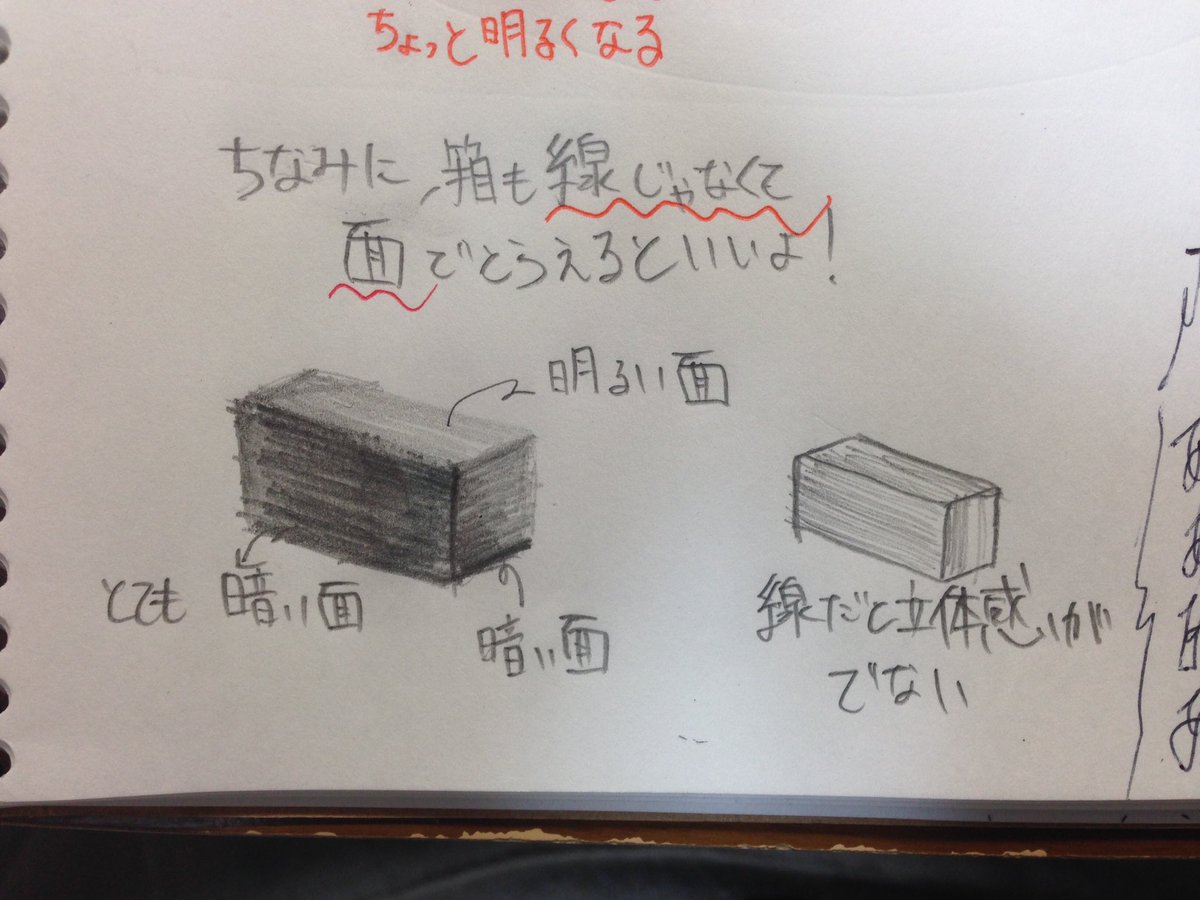 ちょっと明るくなる
ちなみに、箱も線じゃなくて
面でとらえるといいよ!
明るい面
とても暗い面
暗い面
線だと立体感が
でない